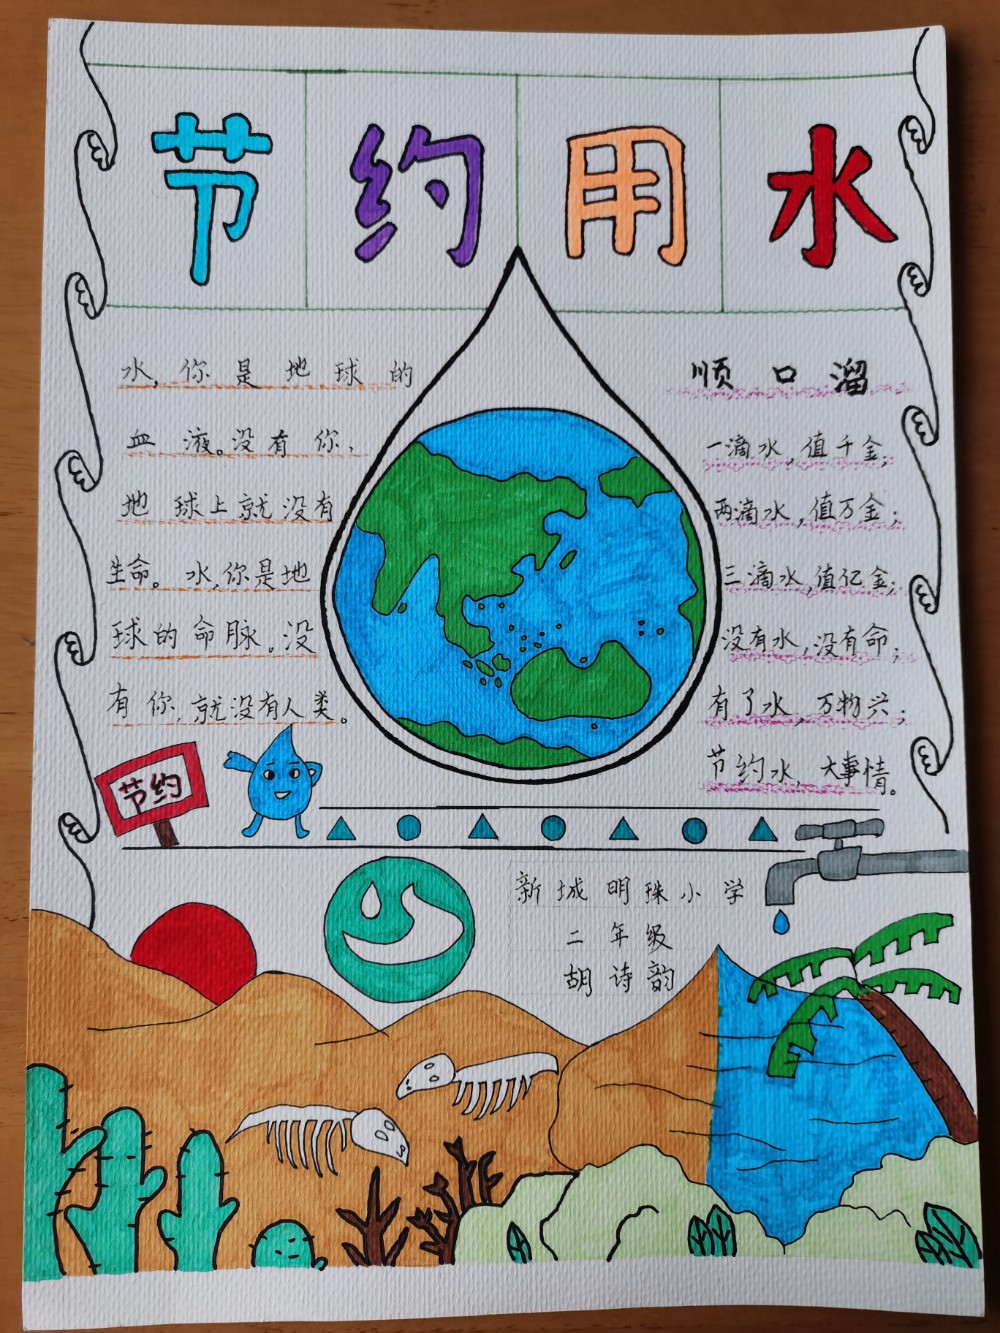 节约用水
水，你是地球的
血液。没有你，
地球上就没有
生命。水，你是地
球的命脉。没
有你，就没有人类。
顺口溜
一滴水，值千金；
两滴水，值万金；
三滴水，值亿金；
没有水，没有命；
有了水，万物兴；
节约水，大事情。
节约
新城明珠小学
二年级
胡诗韵